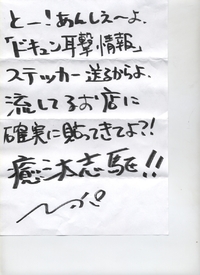 とー!あんしぇ〜よ.
「ドキュン耳撃情報」
ステッカー送るからよ.
流してるお店に
確実に貼ってきてよ?!
癒し太志駆!!